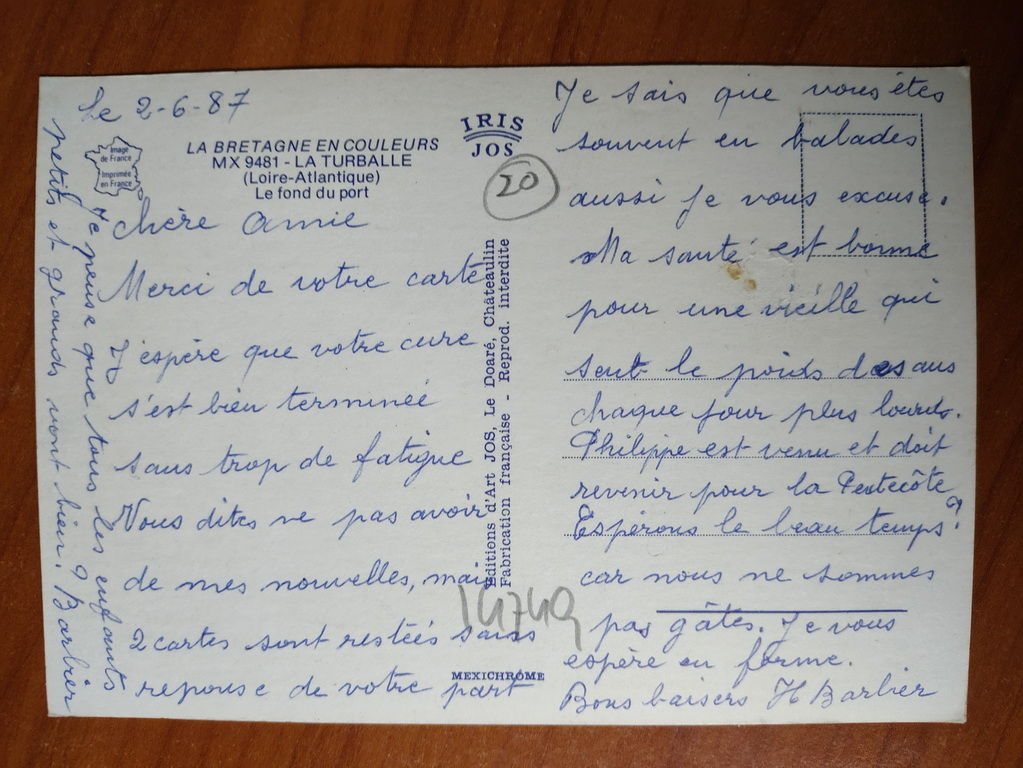 le 2-6-87
Image
de France
Imprimée
en France
LA BRETAGNE EN COULEURS
MX 9481 - LA TURBALLE
(Loire-Atlantique)
Le fond du port
IRIS
JOS
20
Chère Amie
Merci de votre carte
J'espère que votre cure
s'est bien terminée
sans trop de fatigue
Vous dites ne pas avoir
de mes nouvelles, mais
2 cartes sont restées sans
reponse de votre part
Je sais que vous êtes
souvent en balades
aussi je vous excuse.
Ma santé est bonne
pour une vieille qui
sent le poids des ans
chaque jour plus lourds.
Philippe est venu et doit
revenir pour la Pentecôte
Espérons le beau temps?
car nous ne sommes
pas gâtés. Je vous
espère en forme.
Bons baisers H Barbier
Je pense que tous les enfants
petits et grands vont bien? Barbier
Editions d'Art JOS, Le Doaré, Châteaulin
Fabrication française - Reprod. interdite
14749
MEXICHROME